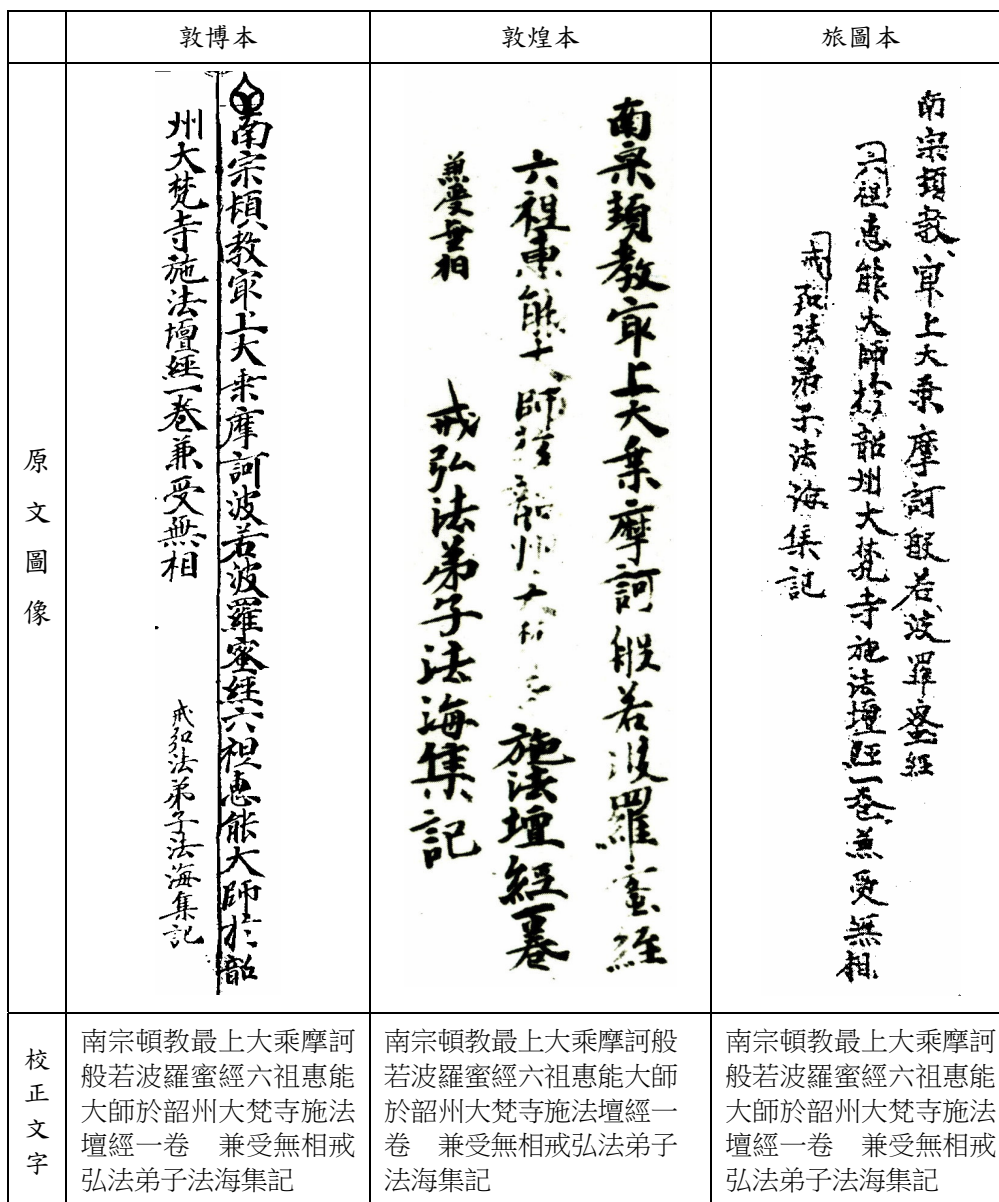 敦博本
敦煌本
旅圖本
原文圖像
南宗頓教㝡上大乗摩訶波若波羅蜜經六祖惠能大師於韶
州大梵寺施法壇經一卷兼受無相
戒弘法弟子法海集記
南宗頓教㝡上大乗摩訶般若波羅蜜經
六祖惠能大師於韶州大梵寺施法壇經一卷
兼受無相
戒弘法弟子法海集記
南宗頓教㝡上大乗摩訶般若波羅蜜經
六祖惠能大師於韶州大梵寺施法壇經一卷兼受無相
戒弘法弟子法海集記
校正文字
南宗頓教最上大乘摩訶
般若波羅蜜經六祖惠能
大師於韶州大梵寺施法
壇經一卷　兼受無相戒
弘法弟子法海集記
南宗頓教最上大乘摩訶般
若波羅蜜經六祖惠能大師
於韶州大梵寺施法壇經一
卷　兼受無相戒弘法弟子
法海集記
南宗頓教最上大乘摩訶
般若波羅蜜經六祖惠能
大師於韶州大梵寺施法
壇經一卷　兼受無相戒
弘法弟子法海集記